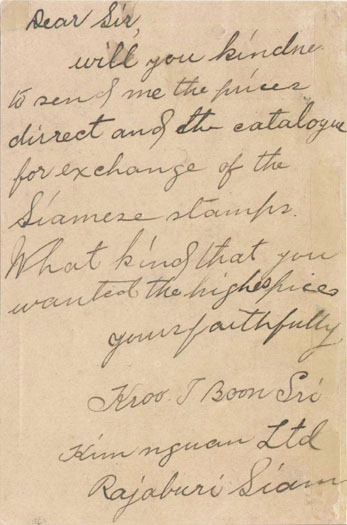 Dear Sir,
will you kindne
to send me the prices
dirrect and the catalogue
for exchange of the
Siamese stamps.
What kind that you
wanted the highes prices
yours faithfully
Kroo. T Boon Sri
Kim nguan Ltd
Rajaburi Siam